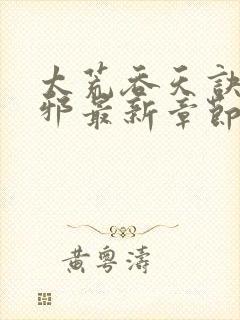 大荒吞天訣
邪最新章節
黃粵濤